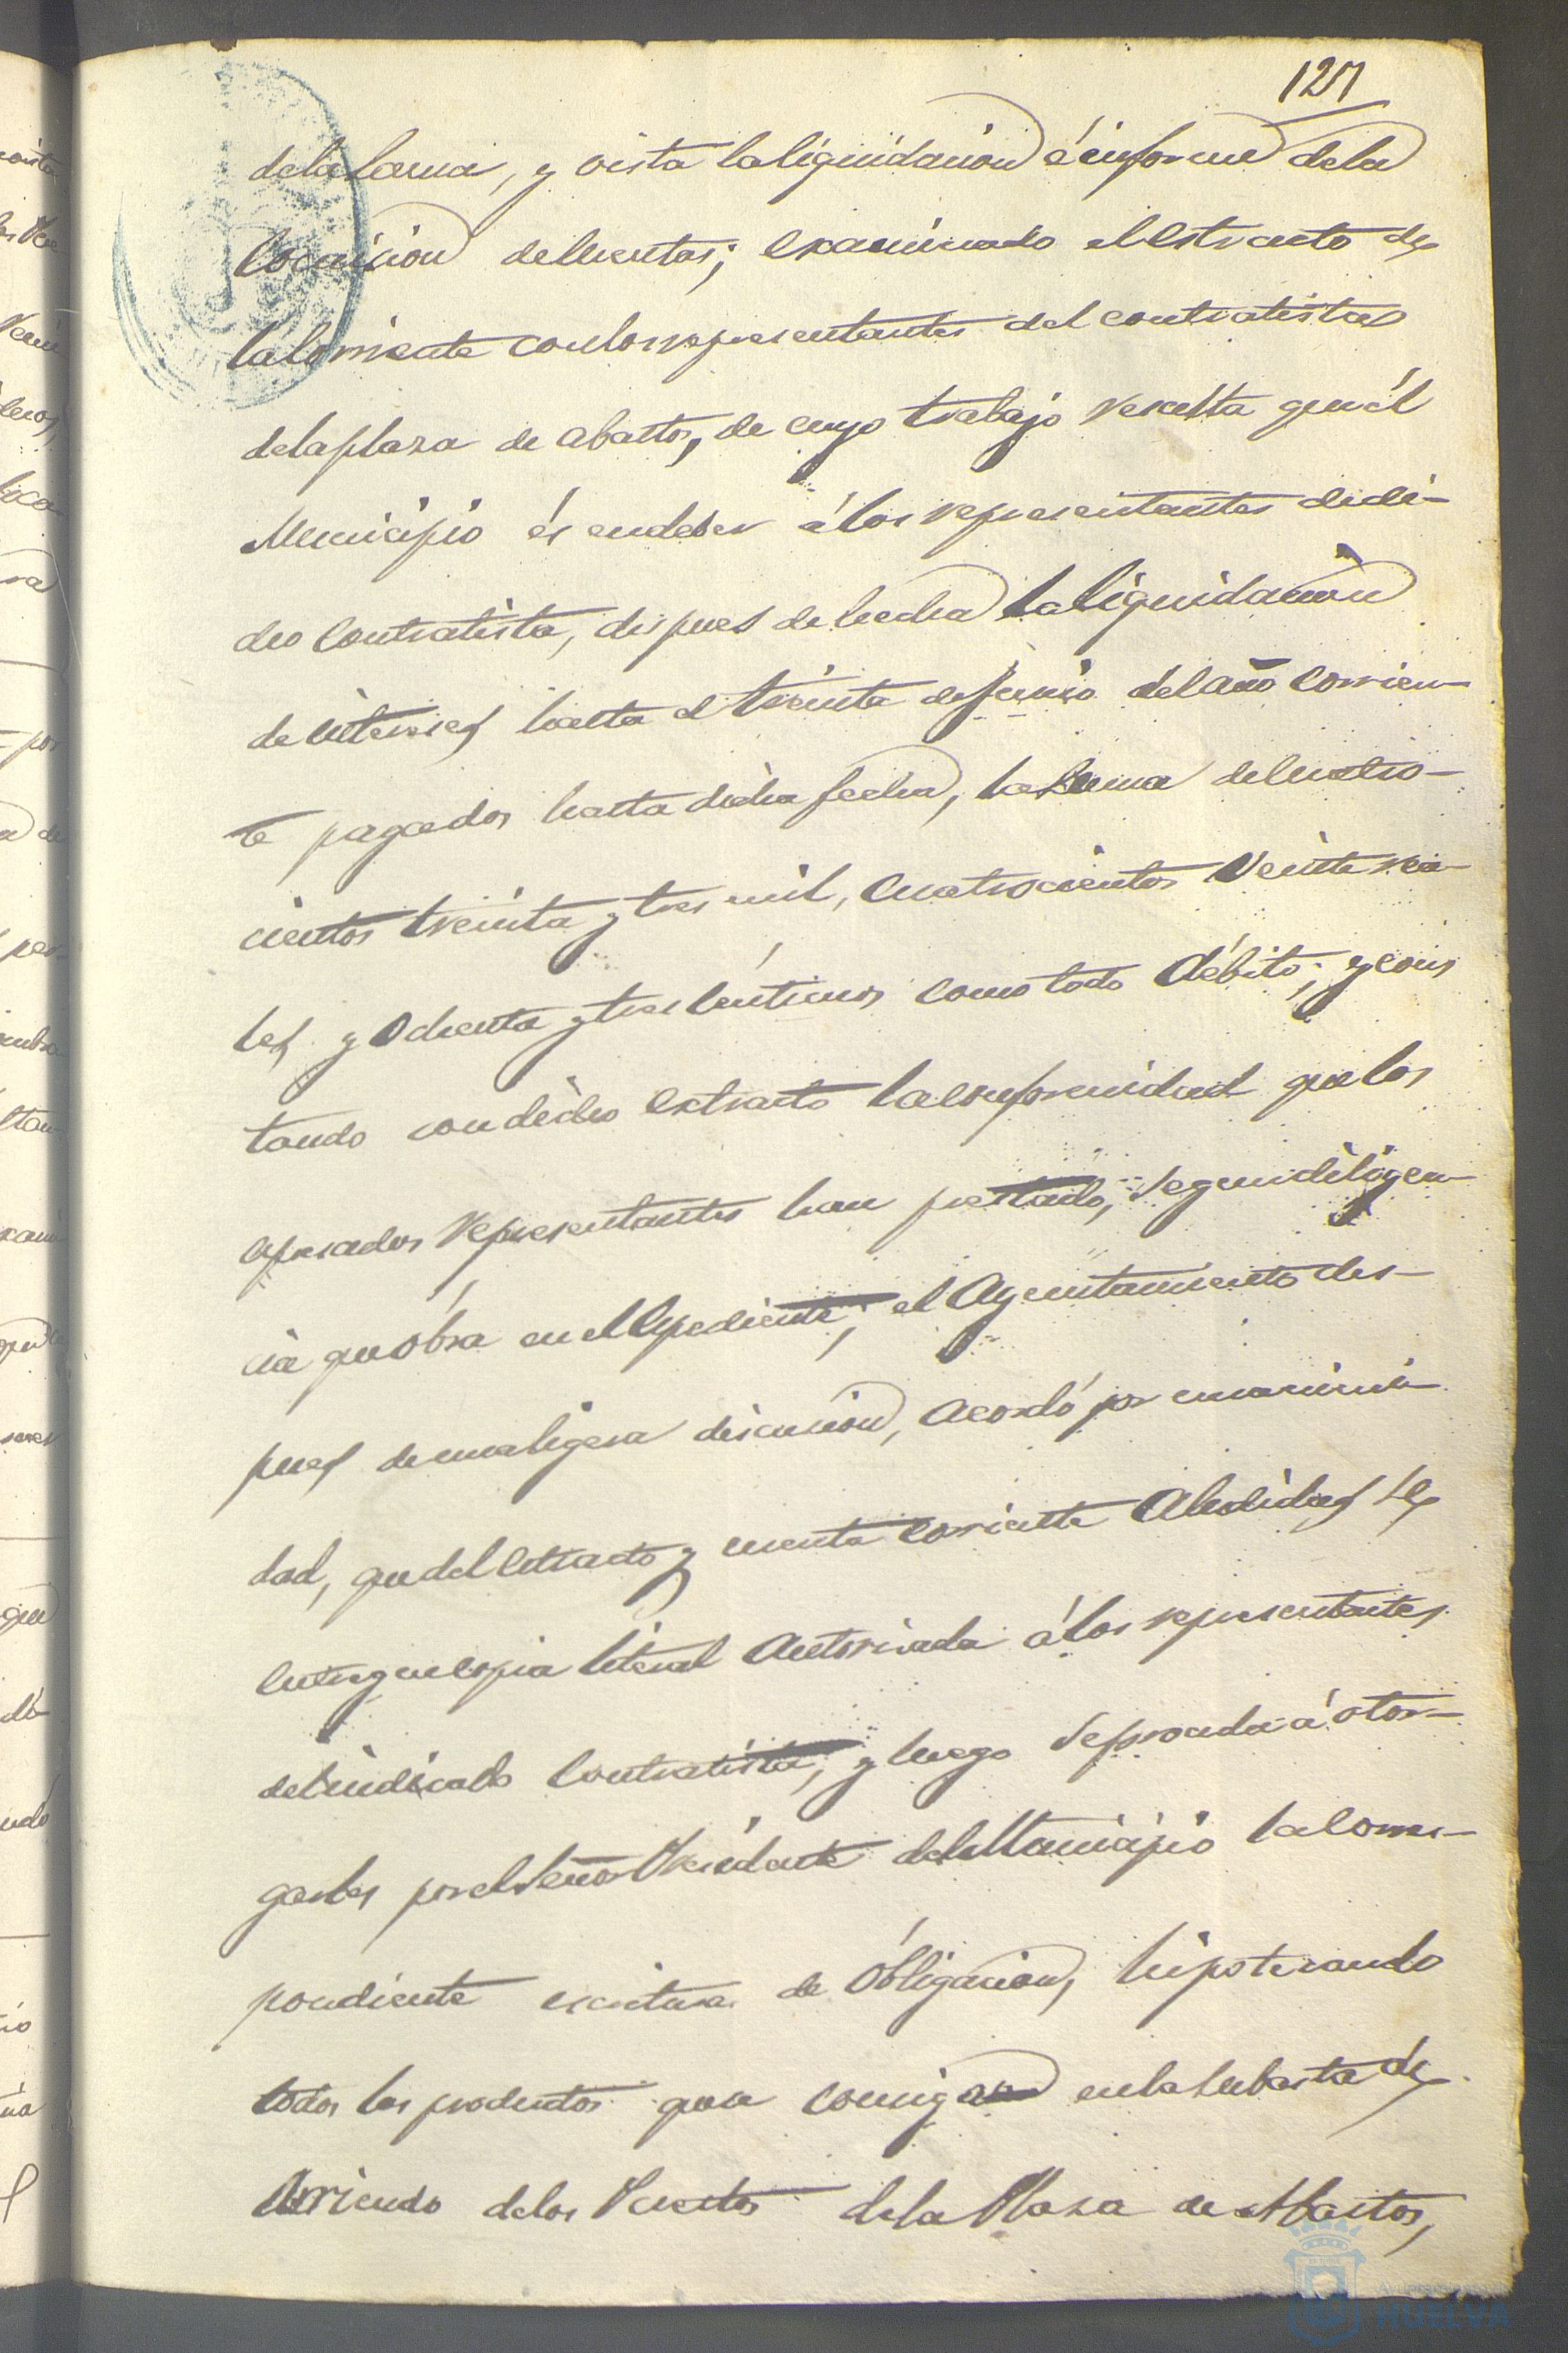 127
dela Lerma, y vista la liquidacion é informe dela
Comision de Cuentas; examinado el estracto de
la Corriente con los representantes del contratista
dela plaza de abastos, de cuyo trabajo resulta que él
Municipio és endeber á los representantes de di-
cho Contratista, despues de hecha la liquidacion
de intereses hasta el treinta de Junio del año Corrien-
te pagados hasta dicha fecha, la suma de Cuatro-
cientos treinta y tres mil, Cuatrocientos Veinte rea-
les y Ochenta y tres Céntimos como todo débito; y cons
tando con dicho extracto la conformidad que los
espresados Representantes han prestado, segun diligen-
cia que obra en el Espediente; el Ayuntamiento des-
pues de una ligera discusion, acordó por unanimi-
dad, que del Estracto y cuenta corriente Aludidas se
entregue copia literal Autorizada á los representantes
del indicado Contratista, y luego se proceda á otor-
garles por el Señor Presidente del Municipio la Corres-
pondiente escritura de Obligacion, hipotecando
todos los productos que se consigan en la subasta de
Arriendo delos Puestos dela Plaza de Abastos,
HUELVA